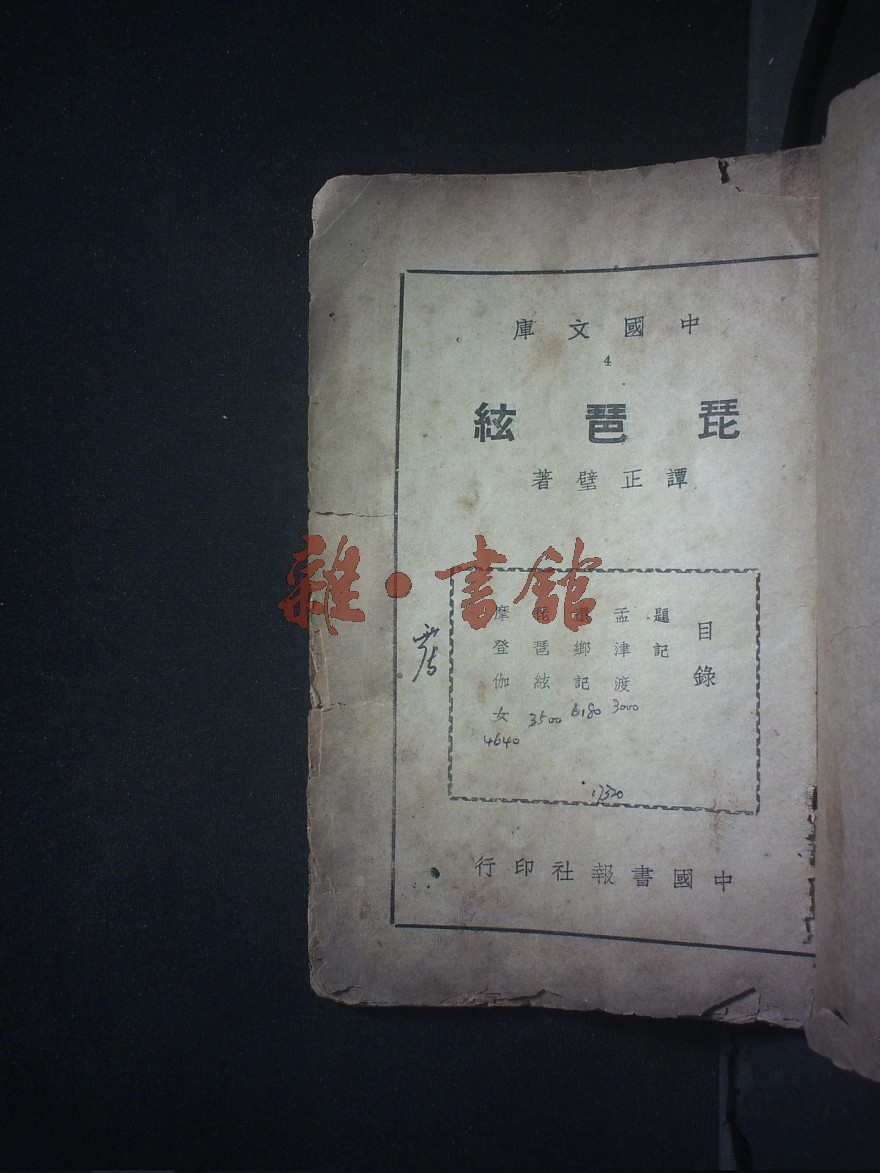 中國文庫
4
琵琶絃
譚正璧著
目錄
題記
孟津渡 3000
還鄉記 6180
琵琶絃 3500
摩登伽女 4640
17320
中國書報社印行
雜·書館